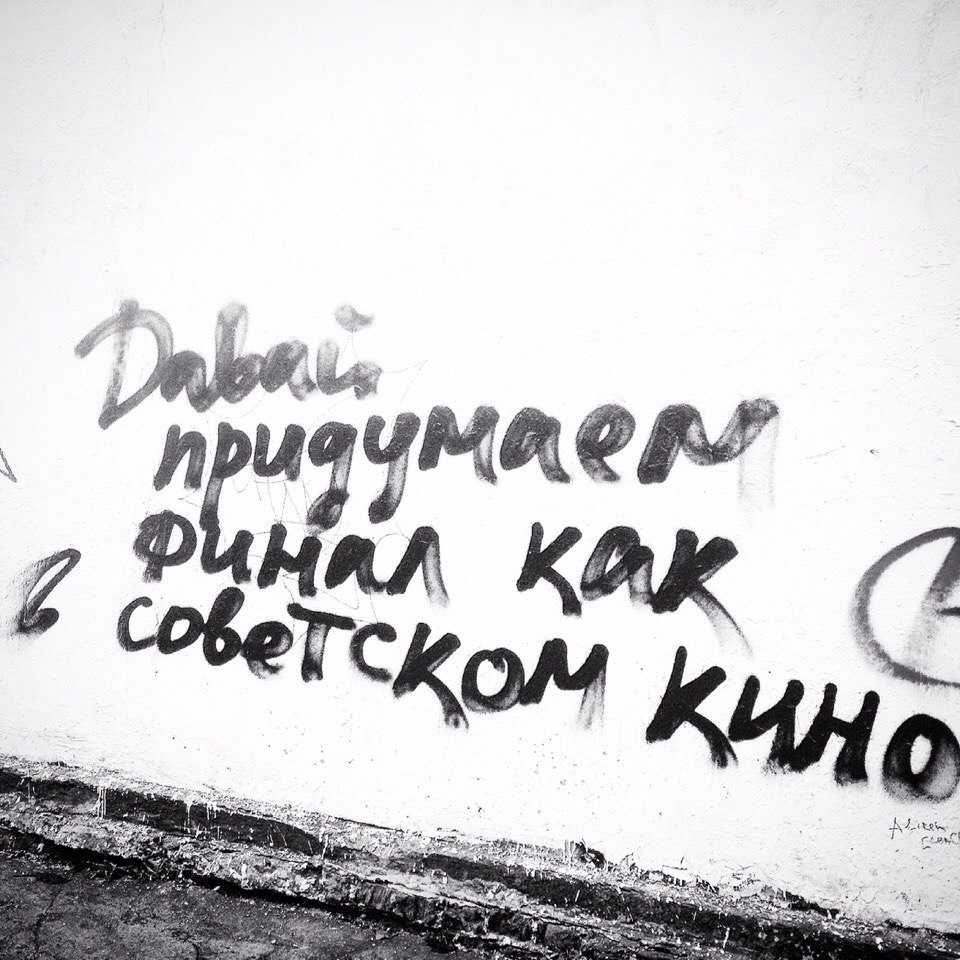 Давай
придумаем
финал как
в советском кино